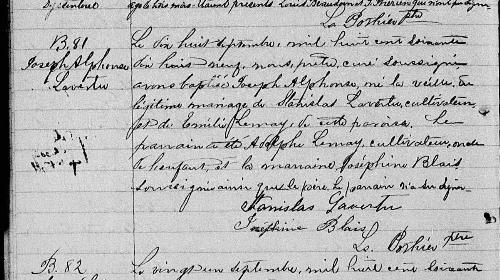 après trois mois. Etaient présents Louis Beaudoin &
Ls. Pothier Ptre
B. 81
Joseph Alphonse
Lavertu
Le dix huit septembre, mil huit cent soixante
dix neuf, nous, prêtre, curé soussigné
avons baptisé Joseph Alphonse, né la veille, du
légitime mariage de Stanislas Lavertu, cultivateur
et de Emilie Lemay de cette paroisse. Le
parrain a été Adolphe Lemay, cultivateur, oncle
de l'enfant, et la marraine Joséphine Blais
soussignée ainsi que le père. Le parrain n'a su signer
Stanislas Lavertu
Joséphine Blais
Ls. Pothier ptre
B. 82
Le vingt un septembre, mil huit cent soixante